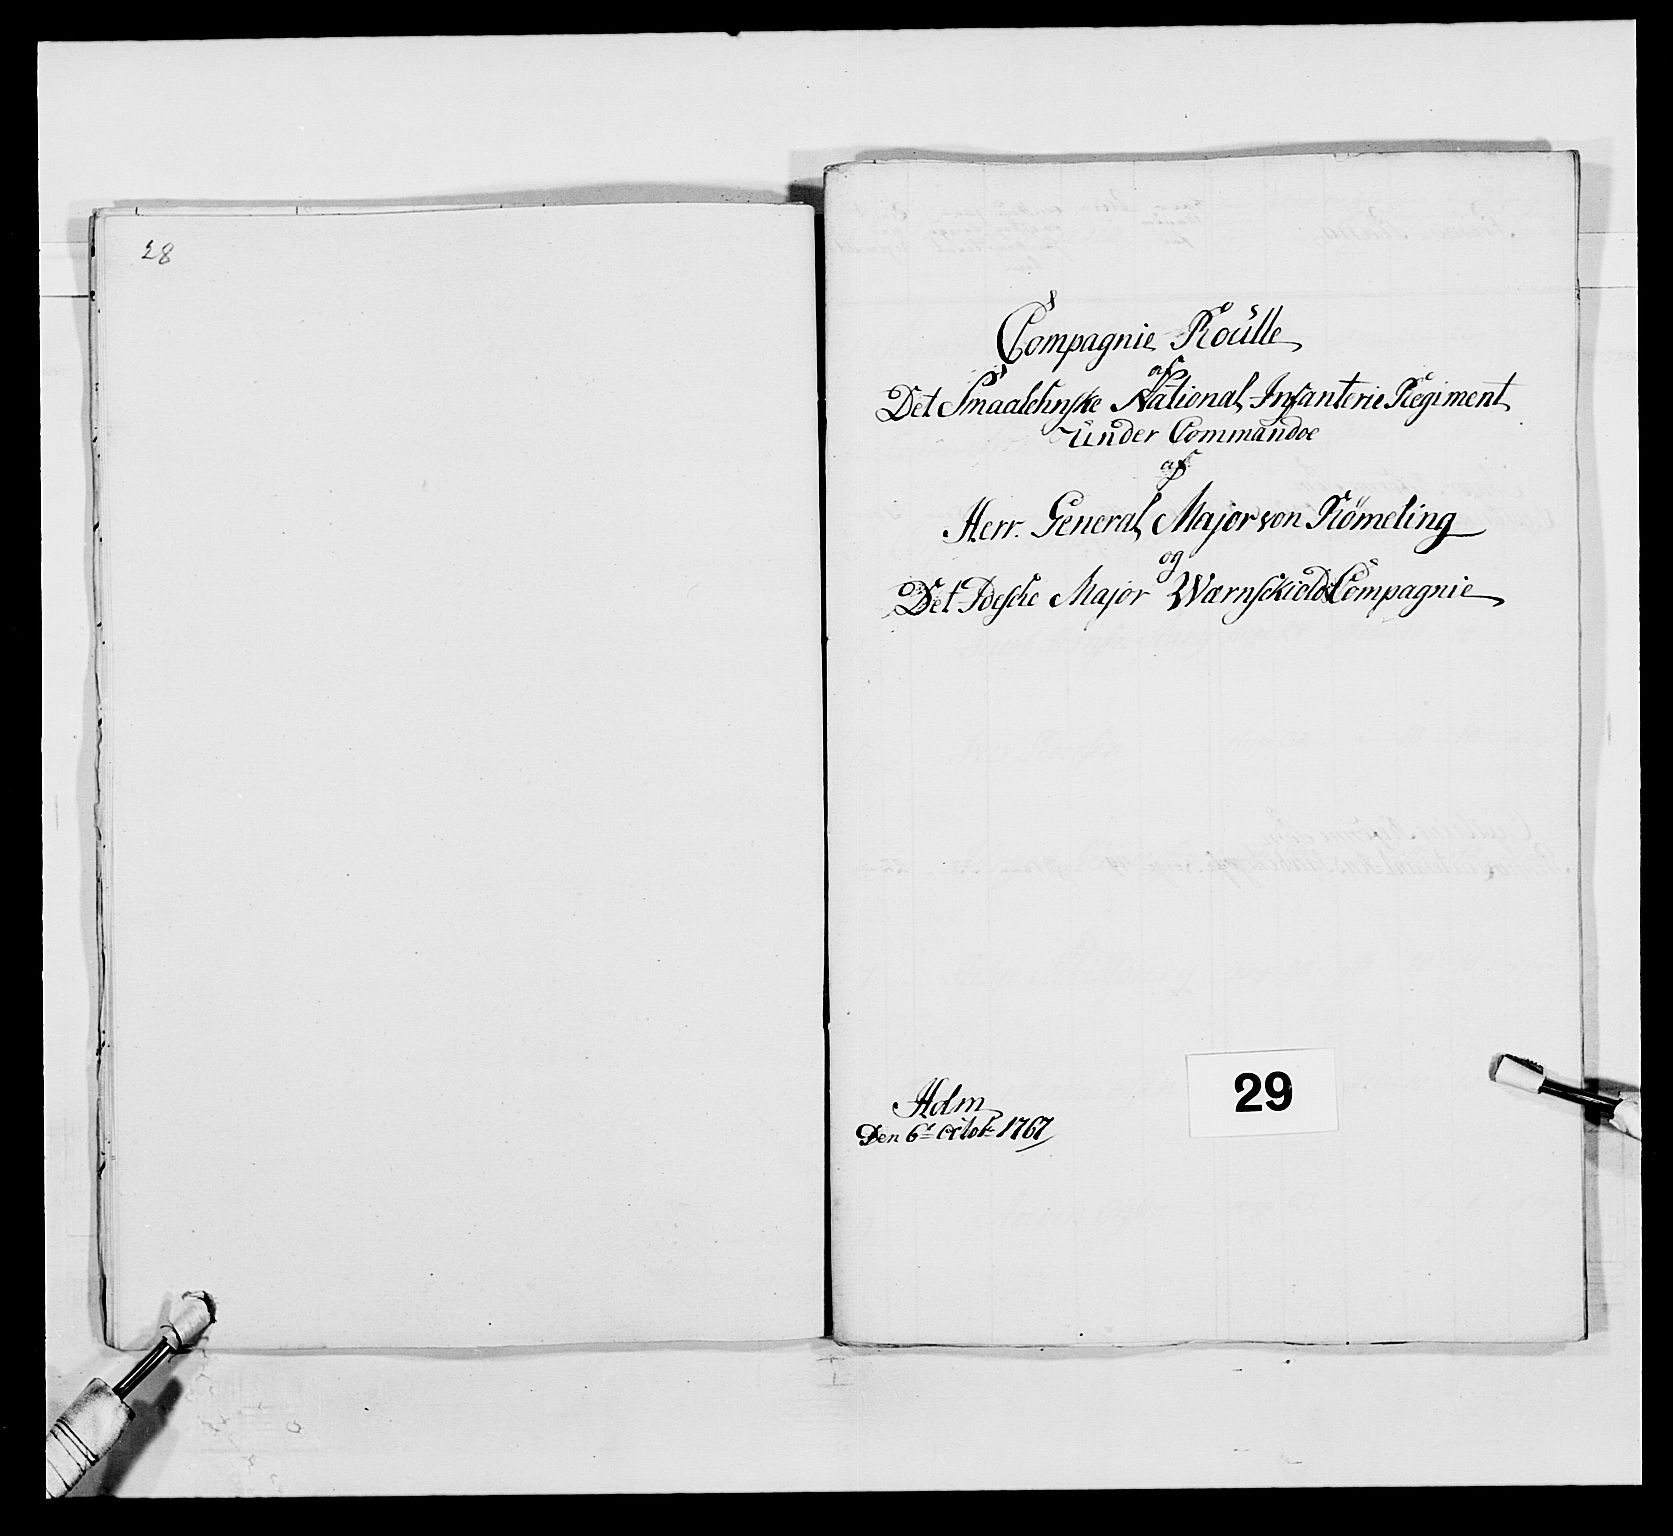 28
Compagnie Roülle
af
Det Smaalehnske National Infanterie Regiment
ünder Commandoe
af
Herr General Major von Römeling
og
Det Idesche Major Wærnskiolds Compagnie
Holm
Den 6t octobr 1767
29